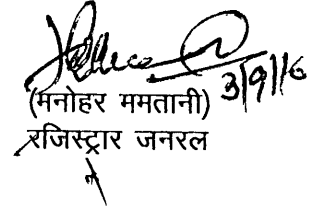 3/9/16
(मनोहर ममतानी)
रजिस्ट्रार जनरल